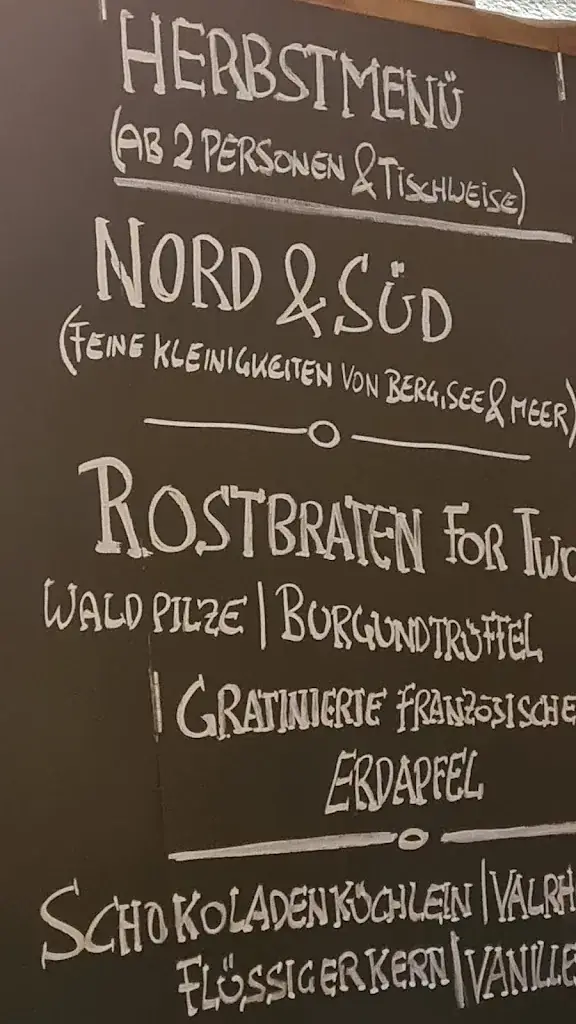 HERBSTMENÜ
(AB 2 PERSONEN & TISCHWEISE)
NORD & SÜD
(FEINE KLEINIGKEITEN VON BERG, SEE & MEER)
ROSTBRATEN FOR TWO
WALDPILZE | BURGUNDTRÜFFEL
| GRATINIERTE FRANZÖSISCHE
ERDAPFEL
SCHOKOLADENKÜCHLEIN | VALRH
FLÜSSIGER KERN | VANILLE